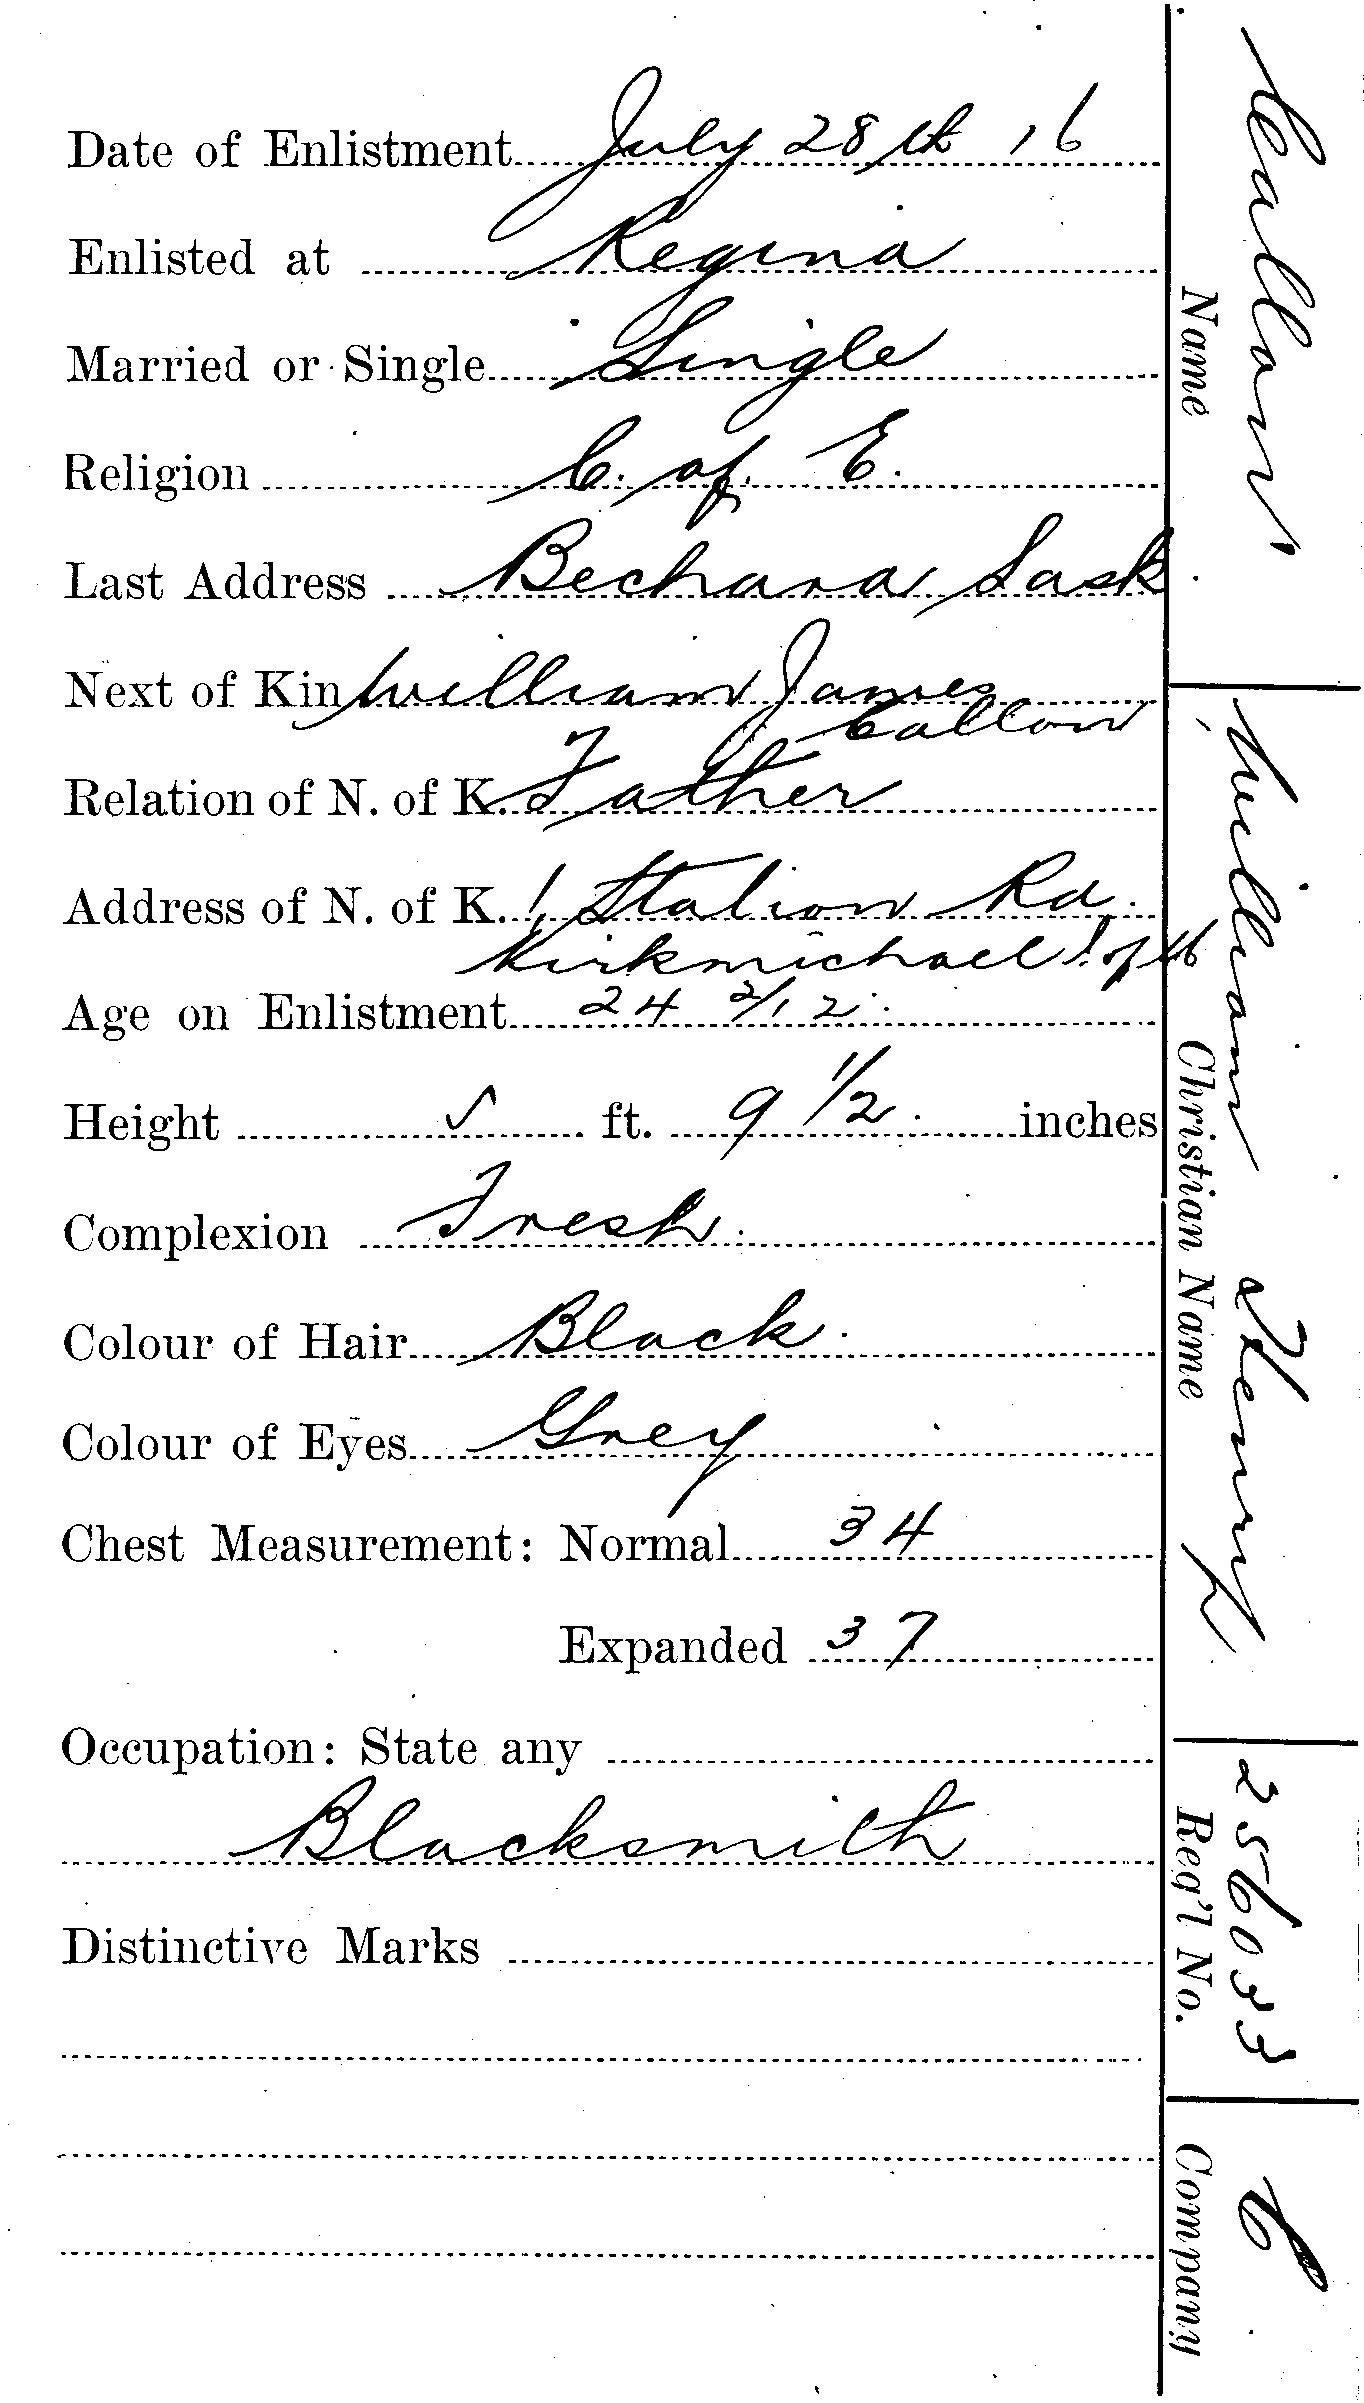 Date of Enlistment July 28th 16
Enlisted at Regina
Married or Single Single
Religion C. of E.
Last Address Bechard Sask
Next of Kin William James
Callow
Relation of N. of K. Father
Address of N. of K. 1, Station Rd.
Kirkmichael I. of M
Age on Enlistment 24 2/12
Height 5 ft. 9 1/2 inches
Complexion Fresh
Colour of Hair Black
Colour of Eyes Grey
Chest Measurement: Normal 34
Expanded 37
Occupation: State any
Blacksmith
Distinctive Marks
Callow
Name
William Henry
Christian Name
256033
Reg'l No.
C
Company